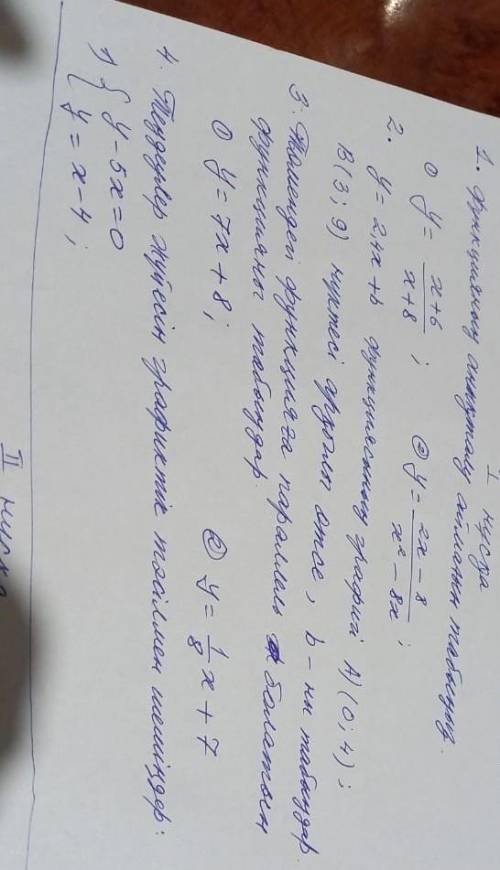 I нусқа
1. Функцияның анықталу аймағын табыңыз.
① y = x+6 / x+8 ; ② y = 2x-8 / x² - 8x ;
2. y = 2,4x + b функциясының графигі A)(0;4);
B(3;9) нүктесі арқылы өтсе, b-ны табыңдар.
3. Төмендегі функцияға параллель болатын
функцияны табыңдар
① y = 7x + 8 ; ② y = 1/8 x + 7
4. Теңдеулер жүйесін графиктік тәсілмен шешіңдер:
1) { y - 5x = 0
y = x - 4 ;
II нусқа